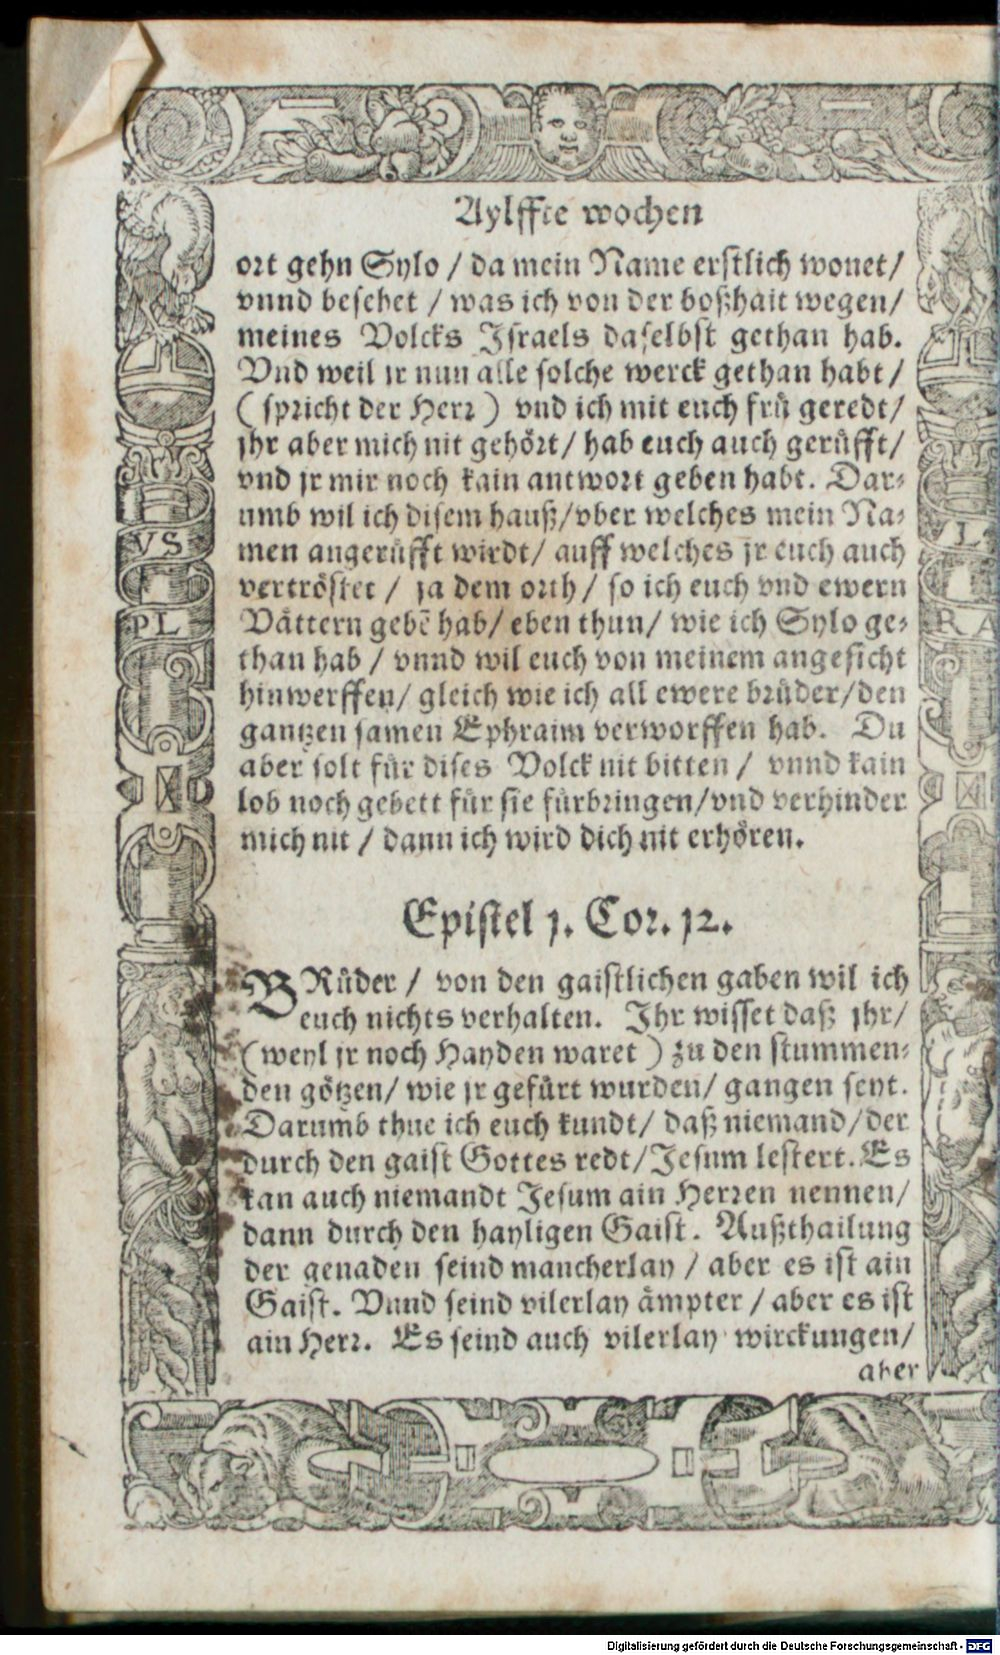 Aylffte wochen
ort gehn Sylo / da mein Name erstlich wonet /
vnnd besehet / was ich von der boßhait wegen /
meines Volcks Israels daselbst gethan hab.
Vnd weil jr nun alle solche werck gethan habt /
( spricht der Herr ) vnd ich mit euch frů geredt /
jhr aber mich nit gehört / hab euch auch gerůfft /
vnd jr mir noch kain antwort geben habt. Dar-
umb wil ich disem hauß / vber welches mein Na-
men angerůfft wirdt / auff welches jr euch auch
vertröstet / ja dem orth / so ich euch vnd ewern
Vättern gebē hab / eben thun / wie ich Sylo ge-
than hab / vnnd wil euch von meinem angesicht
hinwerffen / gleich wie ich all ewere brůder / den
gantzen samen Ephraim verworffen hab. Du
aber solt für dises Volck nit bitten / vnnd kain
lob noch gebett für sie fürbringen / vnd verhinder
mich nit / dann ich wird dich nit erhören.
Epistel 1. Cor. 12.
BRůder / von den gaistlichen gaben wil ich
euch nichts verhalten. Ihr wisset daß jhr /
( weyl jr noch Hayden waret ) zu den stummen-
den götzen / wie jr gefůrt wurden / gangen seyt.
Darumb thue ich euch kundt / daß niemand / der
durch den gaist Gottes redt / Jesum lestert. Es
kan auch niemandt Jesum ain Herren nennen /
dann durch den hayligen Gaist. Außthailung
der genaden seind mancherlay / aber es ist ain
Gaist. Vnnd seind vilerlay ämpter / aber es ist
ain Herr. Es seind auch vilerlay wirckungen /
aber
VS
PL
L
RA
Digitalisierung gefördert durch die Deutsche Forschungsgemeinschaft - DFG